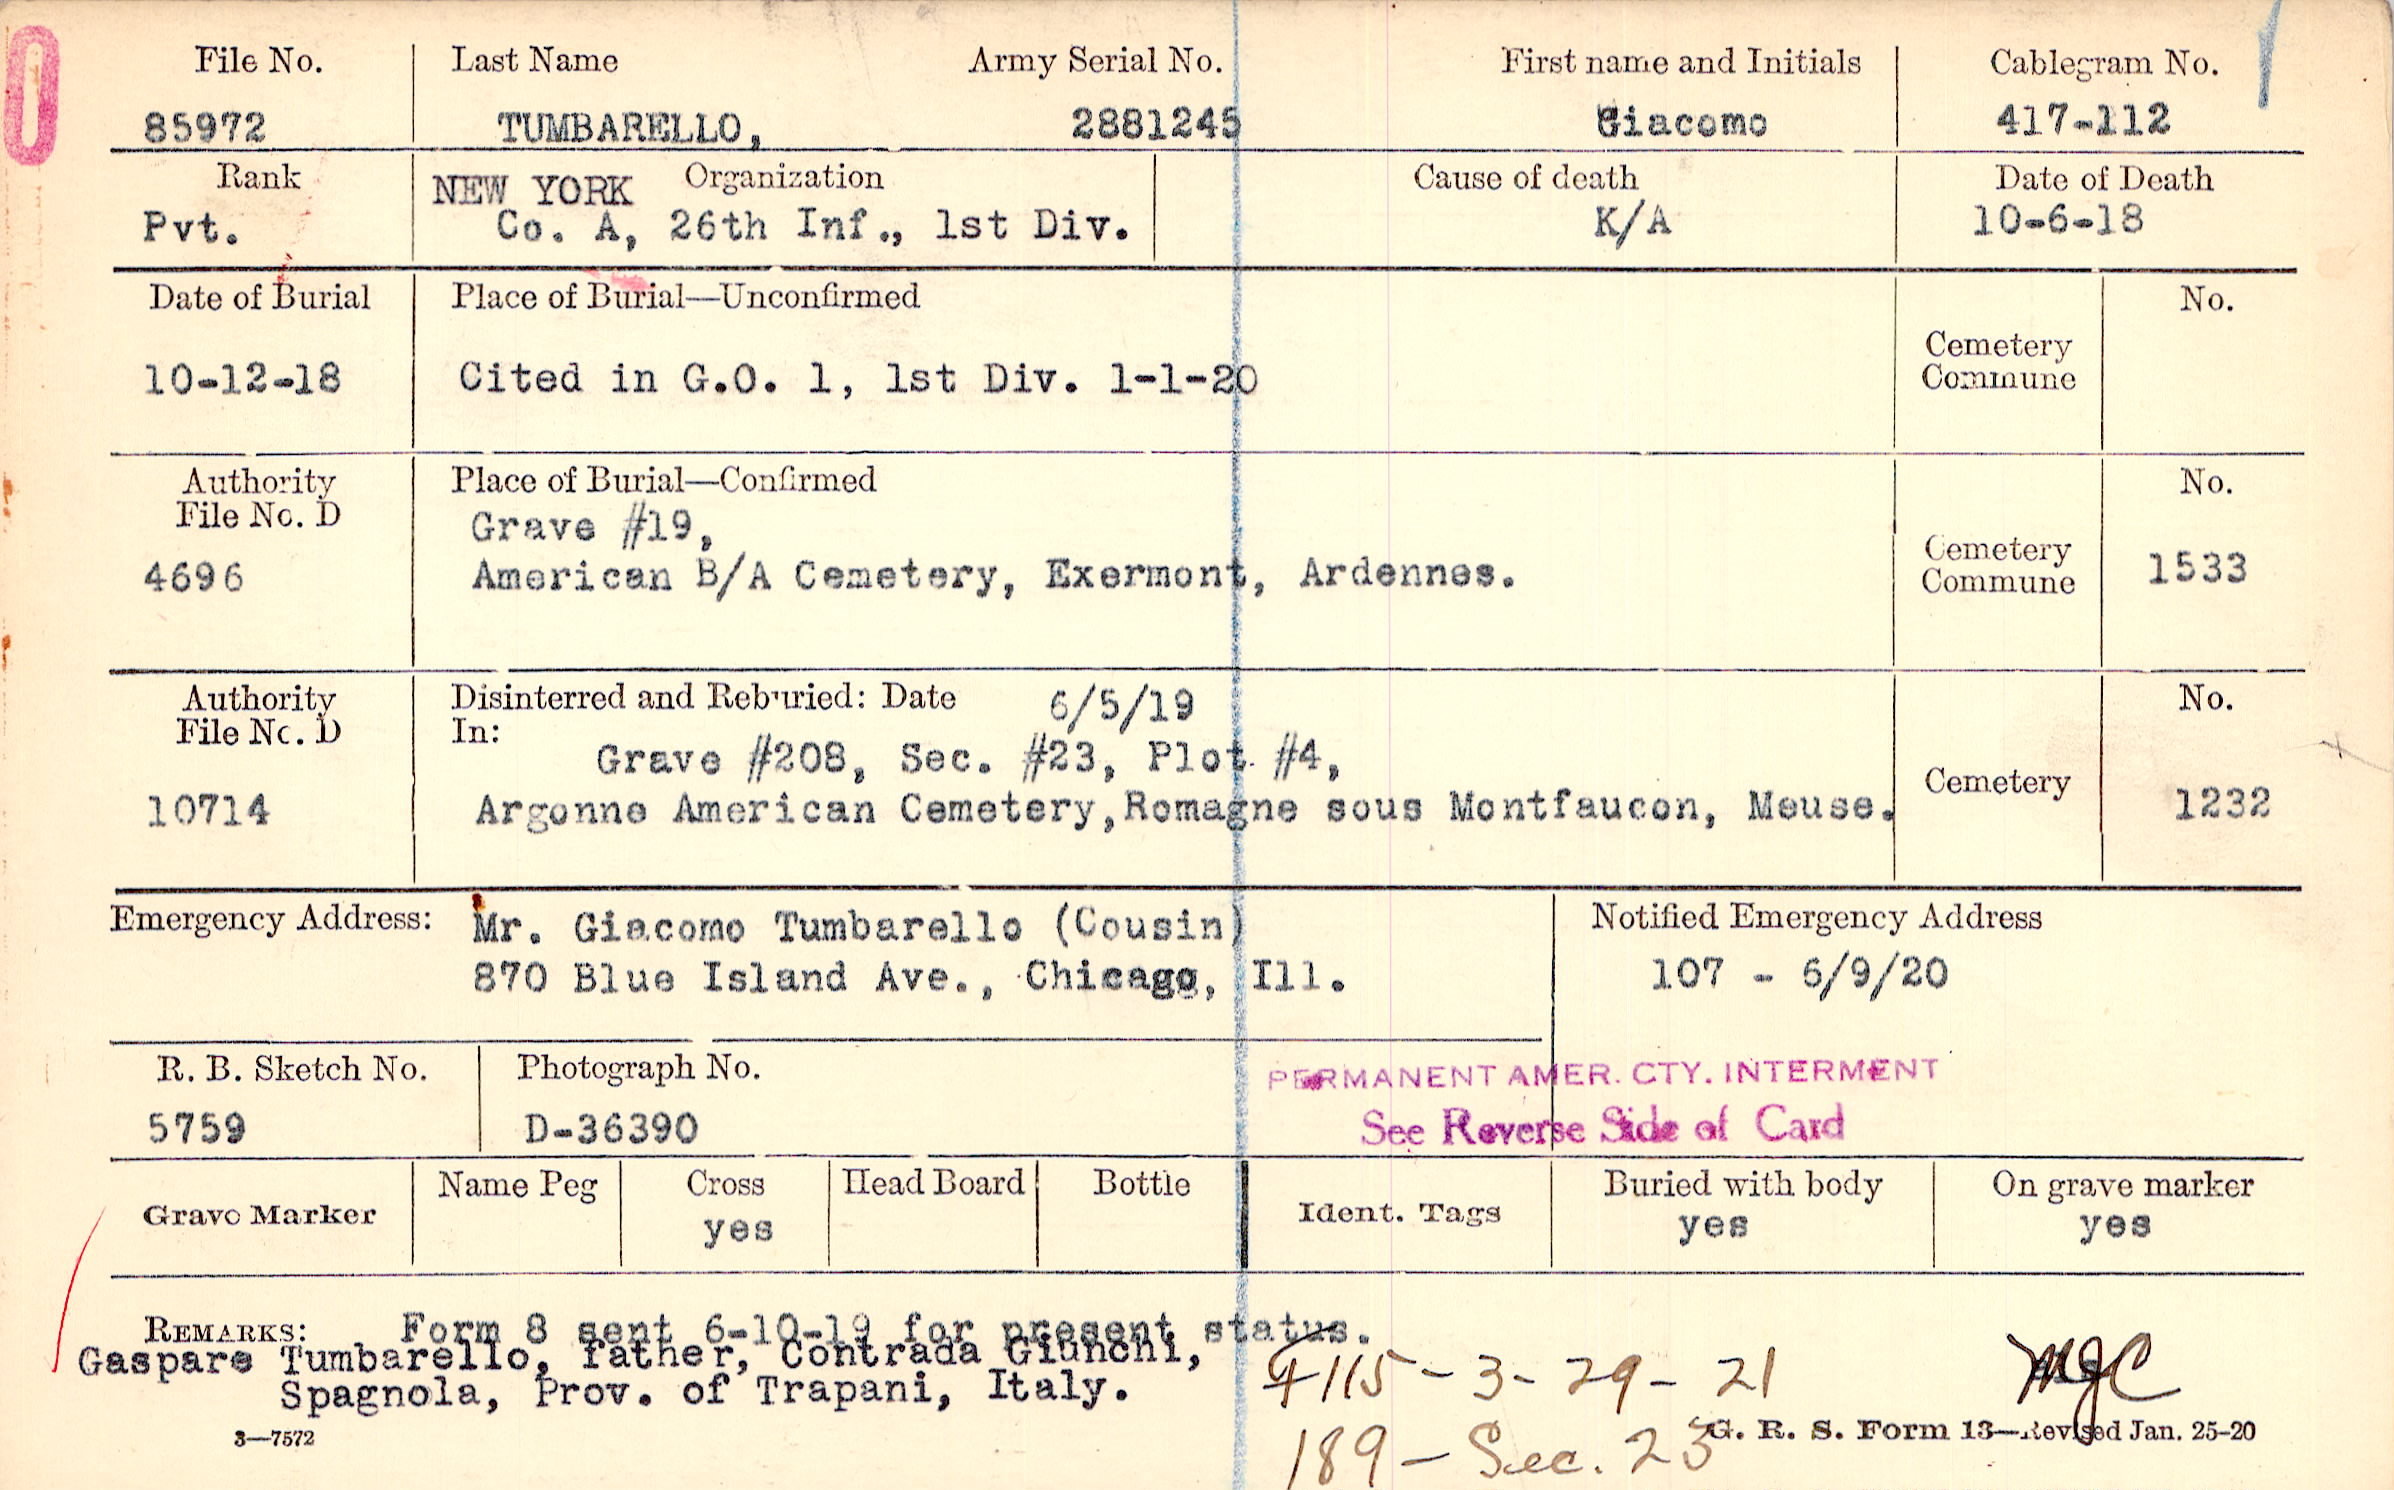 0
File No. Last Name Army Serial No. First name and Initials Cablegram No.
85972 TUMBARELLO, 2881245 Giacomo 417-112
Rank NEW YORK Organization Cause of death Date of Death
Pvt. Co. A, 26th Inf., 1st Div. K/A 10-6-18
Date of Burial Place of Burial—Unconfirmed No.
Cemetery
Commune
10-12-18 Cited in G.O. 1, 1st Div. 1-1-20
Authority Place of Burial—Confirmed No.
File No. D Grave #19,
Cemetery
Commune 1533
4696 American B/A Cemetery, Exermont, Ardennes.
Authority Disinterred and Reburied: Date 6/5/19 No.
File No. D In:
Grave #208, Sec. #23, Plot #4,
Cemetery
10714 Argonne American Cemetery, Romagne sous Montfaucon, Meuse. 1232
Emergency Address: Mr. Giacomo Tumbarello (Cousin) Notified Emergency Address
870 Blue Island Ave., Chicago, Ill. 107 - 6/9/20
R. B. Sketch No. Photograph No. PERMANENT AMER. CTY. INTERMENT
5759 D-36390 See Reverse Side of Card
Grave Marker Name Peg Cross Head Board Bottle Ident. Tags Buried with body On grave marker
yes yes yes
REMARKS: Form 8 sent 6-10-19 for present status.
Gaspare Tumbarello, father, Contrada Giunchi,
Spagnola, Prov. of Trapani, Italy.
#115 - 3 - 29 - 21 MJC
189 - Sec. 23
3—7572 G. R. S. Form 13—Revised Jan. 25-20